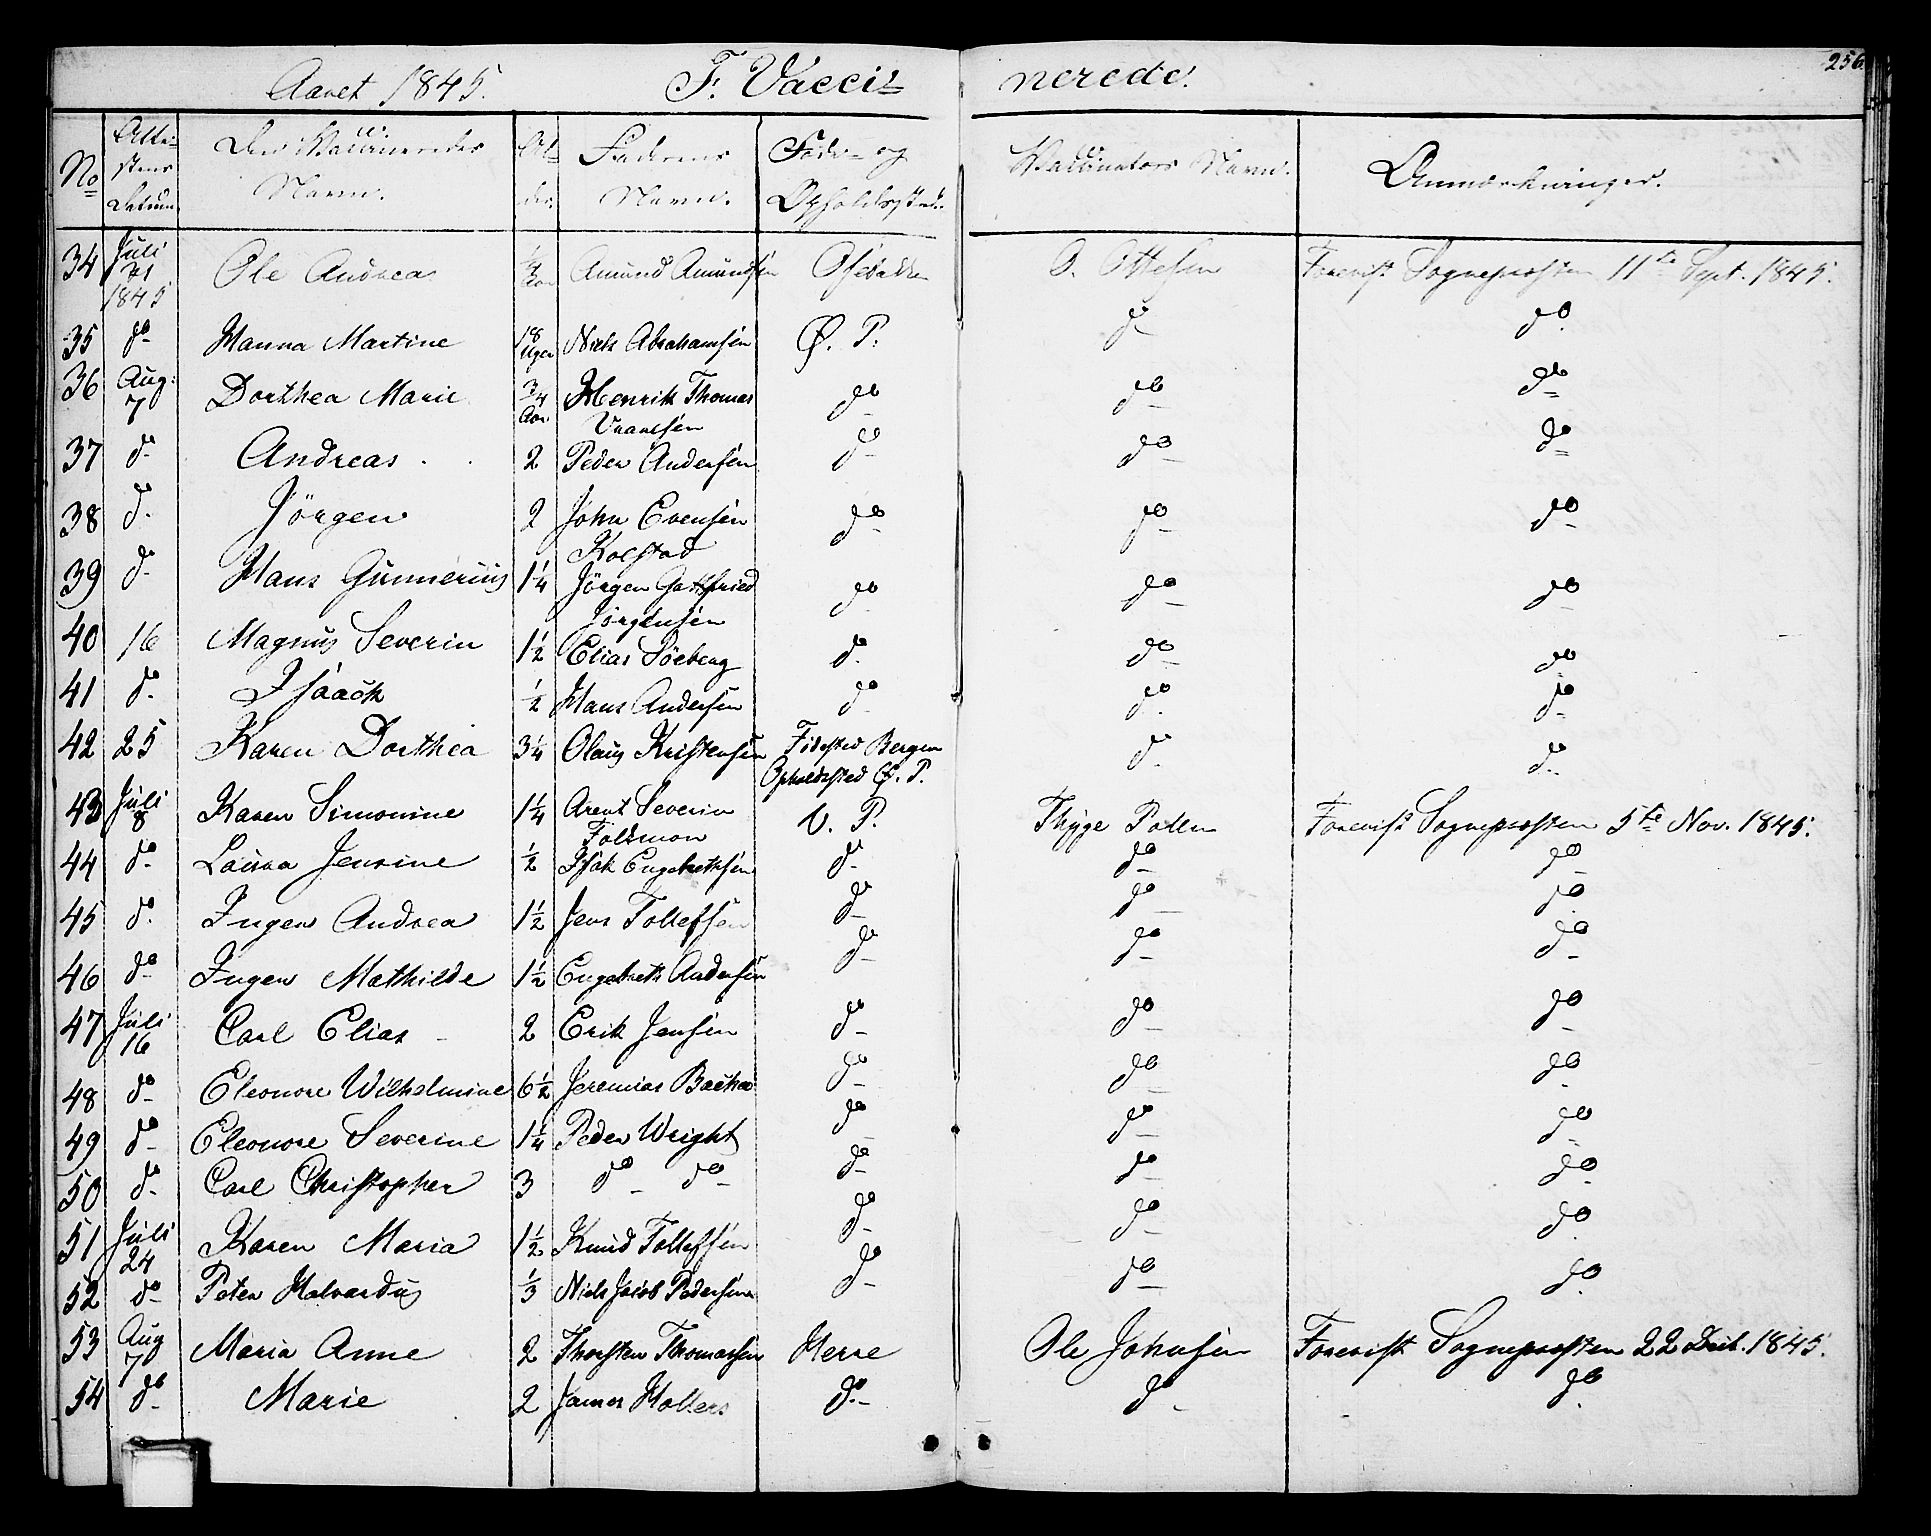 256.
Aaret 1845. F. Vacci= nerede.
No Atte=stens Datum. Den Vaccineredes Navn. Al=der. Faderens Navn. Føde= og Opholdssted. Vaccinators Navn. Anmærkninger.
34 Juli 31 1845 Ole Andreas 1/4 Aar Amund Amundsen Osebakken O. Ottesen Foreviist Sogneprosten 11te Sept. 1845.
35 do Hanna Martine 18 Uger Niels Abrahamsen Ø. P. do do
36 Aug: 7 Dorthea Marie 3/4 Aar Henrik Thomas
Vraaesen do do do
37 do Andreas 2 Peder Andersen do do do
38 do Jörgen 2 John Evensen
Kolstad do do do
39 do Hans Gunnerius 1 1/4 Jörgen Gottfried
Jörgensen do do do
40 16 Magnus Severin 1 1/2 Elias Söeberg do do do
41 do Isaach 1/2 Hans Andersen do do do
42 25 Karen Dorthea 3 1/4 Olaus Kristensen Födested Bergen
Opholdssted Ø. P. do do
43 Juli 8 Karen Simonine 1 1/4 Arent Severin
Folkmon V. P. Thyge Polle Foreviist Sogneprosten 5te Nov. 1845.
44 do Laura Jensine 1/2 Isak Engebrethsen do do do
45 do Ingen Andrea 1 1/2 Jens Tollefsen do do do
46 do Ingen Mathilde 1 1/2 Engebreth Andersen do do do
47 Juli 16 Carl Elias 2 Erik Jensen do do do
48 do Eleonore Wilhelmine 6 1/2 Jeremias Backa do do do
49 do Eleonore Severine 1 1/4 Peder Wright do do do
50 do Carl Christopher 3 do do do do do
51 Juli 24 Karen Maria 1 1/2 Knud Tollefsen do do do
52 do Peter Halvardus 1/3 Niels Jacob Pedersen do do do
53 Aug 7 Maria Anne 2 Thorsten Thomassen Herre Ole Johnsen Foreviist Sogneprosten 22 Decb. 1845.
54 do Marie 2 James Hollers do do do